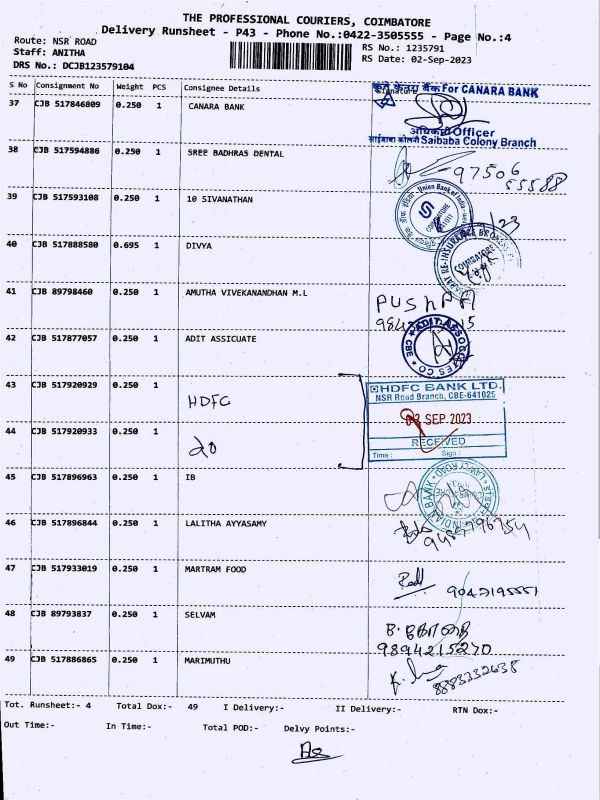 THE PROFESSIONAL COURIERS, COIMBATORE
Delivery Runsheet - P43 - Phone No.:0422-3505555 - Page No.:4
Route: NSR ROAD
RS No.: 1235791
Staff: ANITHA
RS Date: 02-Sep-2023
DRS No.: DCJB123579104
S No Consignment No Weight PCS Consignee Details Signature
For CANARA BANK
37 CJB 517846809 0.250 1 CANARA BANK
अधिकारी/Officer
साईबाबा कोलनी Saibaba Colony Branch
38 CJB 517594886 0.250 1 SREE BADHRAS DENTAL
97506
55588
39 CJB 517593108 0.250 1 10 SIVANATHAN
Union Bank of India
COIMBATORE
40 CJB 517888580 0.695 1 DIVYA
RE-INSURANCE BROKERS
COIMBATORE
41 CJB 89798460 0.250 1 AMUTHA VIVEKANANDHAN M.L
PUSHPA
42 CJB 517877057 0.250 1 ADIT ASSICUATE
ADIT ASSOCIATES CO
CBE
43 CJB 517920929 0.250 1 HDFC
HDFC BANK LTD.
NSR Road Branch, CBE-641025
SEP 2023
44 CJB 517920933 0.250 1
RECEIVED
Time : Sign :
45 CJB 517896963 0.250 1 IB
INDIAN BANK
46 CJB 517896844 0.250 1 LALITHA AYYASAMY
47 CJB 517933019 0.250 1 MARTRAM FOOD
9042195551
48 CJB 89793837 0.250 1 SELVAM
9894215270
49 CJB 517886865 0.250 1 MARIMUTHU
8883332638
Tot. Runsheet:- 4 Total Dox:- 49 I Delivery:- II Delivery:- RTN Dox:-
Out Time:- In Time:- Total POD:- Delvy Points:-